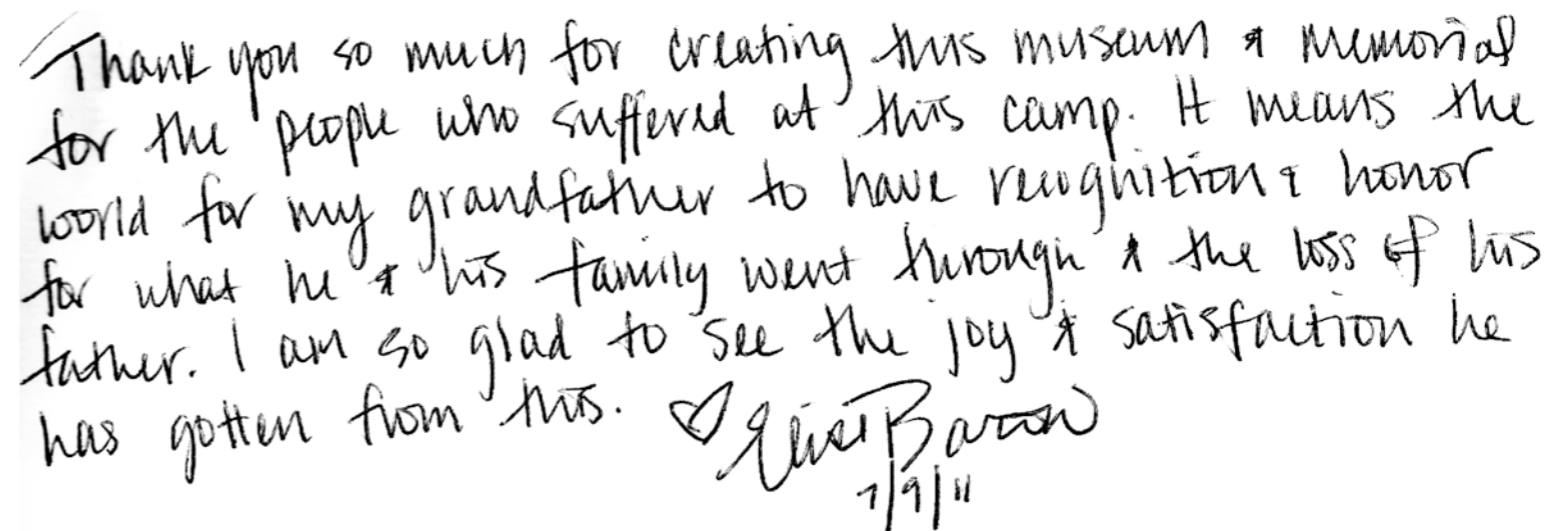 Thank you so much for creating this museum & memorial
for the people who suffered at this camp. It means the
world for my grandfather to have recognition & honor
for what he & his family went through & the loss of his
father. I am so glad to see the joy & satisfaction he
has gotten from this. ♡
7/9/11